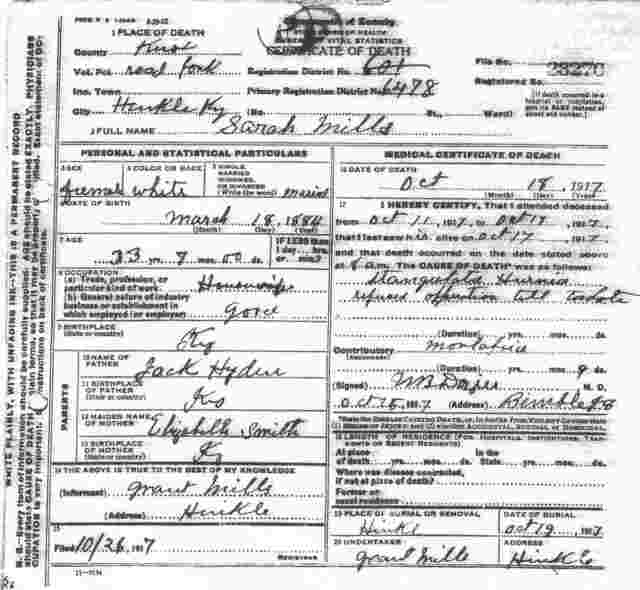 1 PLACE OF DEATH
County Knox
Vot. Pct. road fork
Inc. Town
City Hinkle Ky
2 FULL NAME Sarah Mills
of Kentucky
STATE BOARD OF HEALTH
BUREAU OF VITAL STATISTICS
CERTIFICATE OF DEATH
Registration District No. 601
Primary Registration District No. 6478
(No. St., Ward)
File No. 28270
Registered No.
[If death occurred in a hospital or institution, give its NAME instead of street and number.]
PERSONAL AND STATISTICAL PARTICULARS
3 SEX
female
4 COLOR OR RACE
white
5 SINGLE, MARRIED, WIDOWED, OR DIVORCED
(Write the word) married
6 DATE OF BIRTH
march 18, 1884
(Month) (Day) (Year)
7 AGE
33 yrs. 7 mos. 00 ds.
If LESS than 1 day... hrs. or... min.?
8 OCCUPATION
(a) Trade, profession, or particular kind of work. Housewife
(b) General nature of industry
business or establishment in
which employed (or employer)
9 BIRTHPLACE
(State or country) Ky
PARENTS
10 NAME OF FATHER
Jack Hyden
11 BIRTHPLACE OF FATHER
(State or country) Ky
12 MAIDEN NAME OF MOTHER
Elizabeth Smith
13 BIRTHPLACE OF MOTHER
(State or country) Ky
14 THE ABOVE IS TRUE TO THE BEST OF MY KNOWLEDGE
(Informant) Grant Mills
(Address) Hinkle
15
Filed 10/26, 1917
REGISTRAR
11-3184
MEDICAL CERTIFICATE OF DEATH
16 DATE OF DEATH
Oct 18, 1917
(Month) (Day) (Year)
17 I HEREBY CERTIFY, That I attended deceased
from Oct 11, 1917, to Oct 17, 1917,
that I last saw h alive on Oct 17, 1917,
and that death occurred on the date stated above
at 8 a.m. The CAUSE OF DEATH* was as follows:
Strangulated Hernia
refused operation till too late
(Duration) yrs. mos. ds.
Contributory
(Secondary)
(Duration) yrs. mos. 9 ds.
(Signed) M. D.
Oct 1917 (Address) Bimble Ky
18 LENGTH OF RESIDENCE (FOR HOSPITALS, INSTITUTIONS, TRANSIENTS OR RECENT RESIDENTS)
At place of death... yrs. mos. ds. In the State... yrs. mos. ds.
Where was disease contracted,
if not at place of death?
Former or usual residence
19 PLACE OF BURIAL OR REMOVAL
Hinkle
DATE OF BURIAL
Oct 19, 1917
20 UNDERTAKER
Grant Mills
ADDRESS
Hinkle
WRITE PLAINLY, WITH UNFADING INK—THIS IS A PERMANENT RECORD